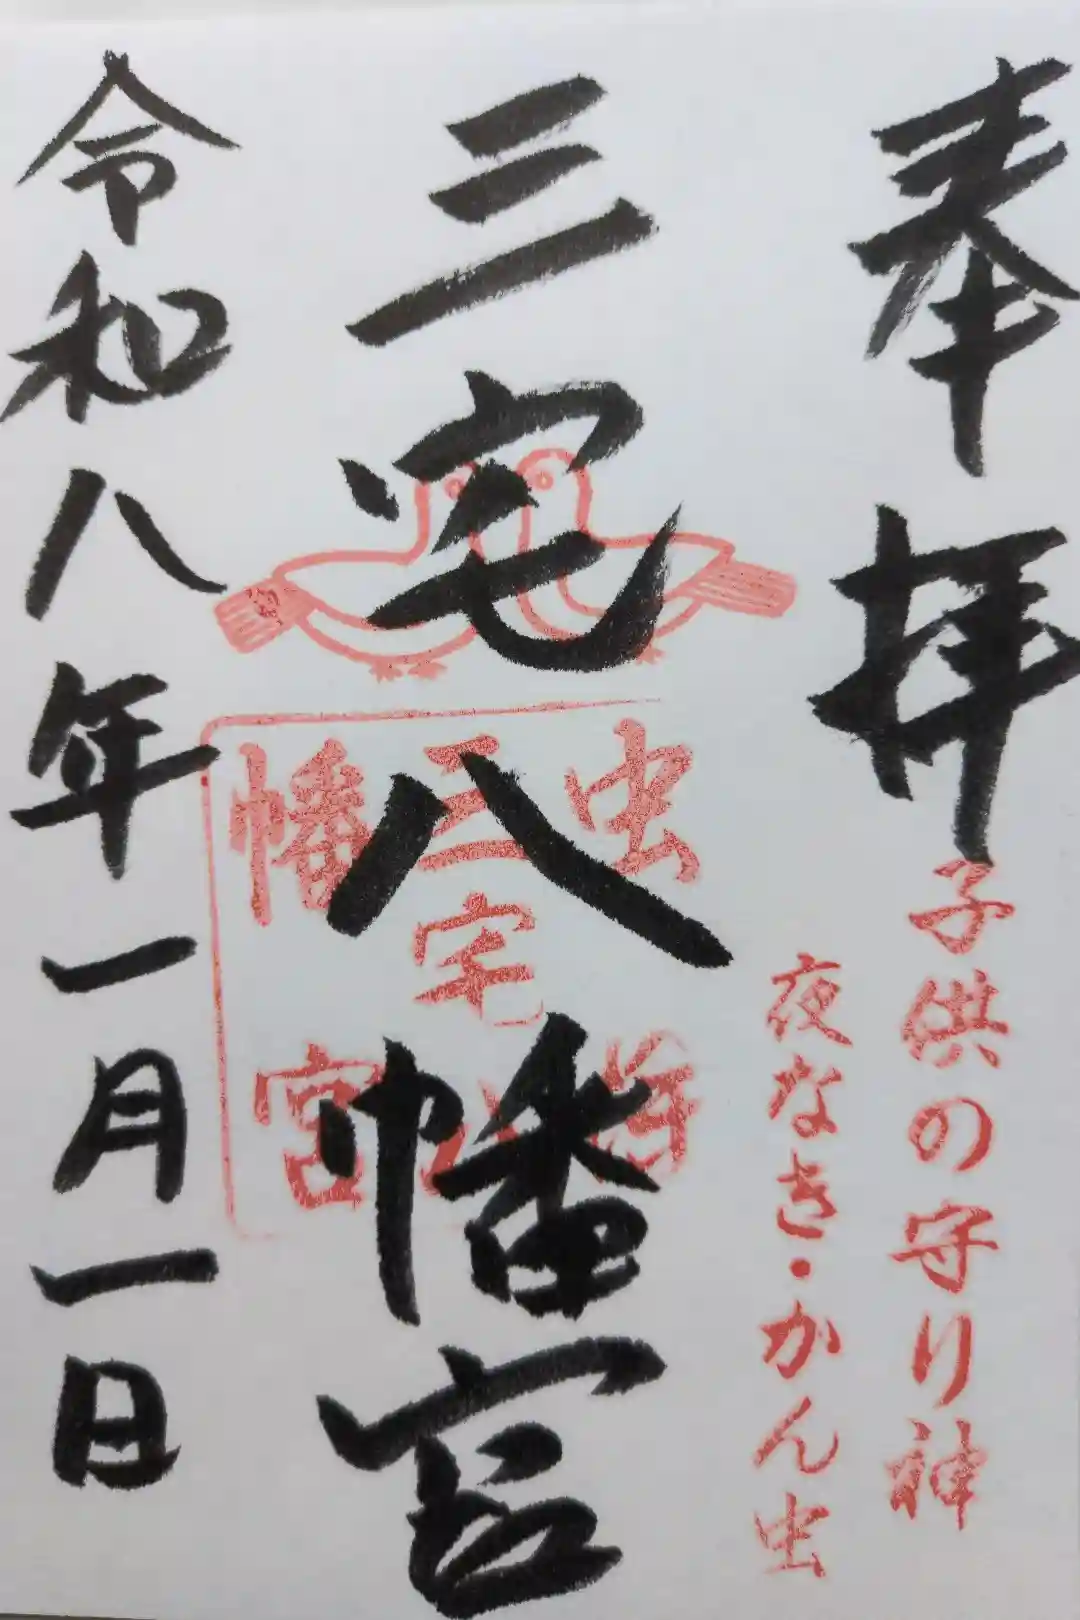 奉拝
子供の守り神
夜なき・かん虫
三宅八幡宮
虫
三宅
幡
宮
令和八年一月一日